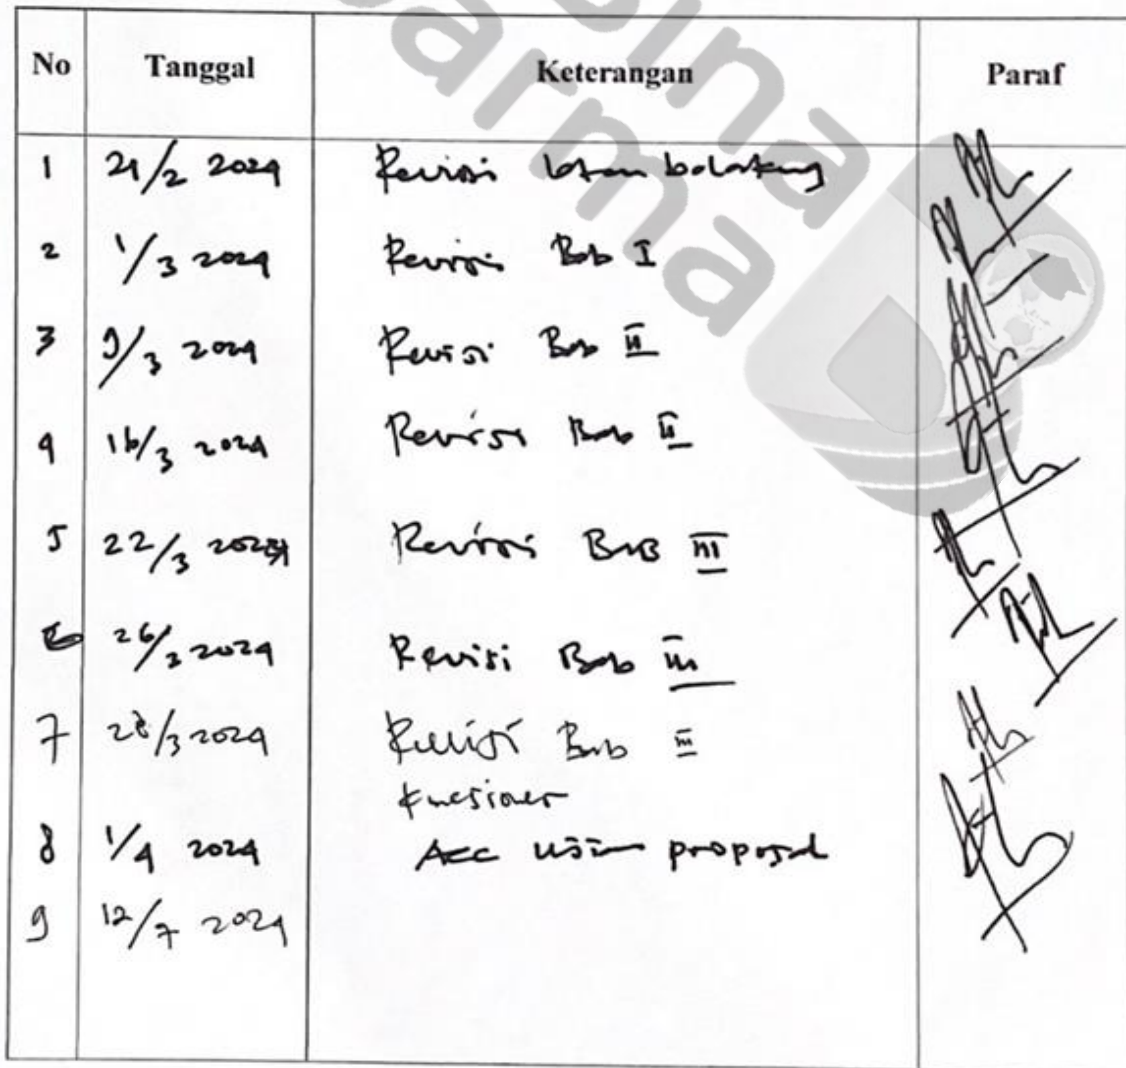 bina
darma
No Tanggal Keterangan Paraf
1 21/2 2024 Revisi latar belakang
2 1/3 2024 Revisi Bab I
3 9/3 2024 Revisi Bab II
4 16/3 2024 Revisi Bab II
5 22/3 2024 Revisi Bab III
6 26/3 2024 Revisi Bab III
7 28/3 2024 Revisi Bab III
Kuesioner
8 1/4 2024 Acc ujian proposal
9 12/7 2024